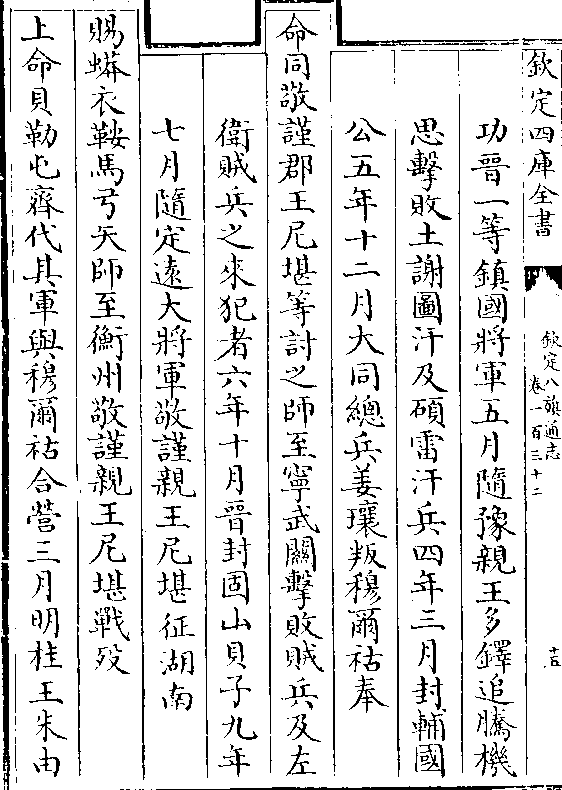 欽定四庫全書
欽定八旗通志
卷一百三十二
十五
功晉一等鎮國將軍五月隨豫親王多鐸追騰機
思擊敗土謝圖汗及碩雷汗兵四年三月封輔國
公五年十二月大同總兵姜瓖叛穆爾祜奉
命同敬謹郡王尼堪等討之師至寧武關擊敗賊兵及左
衛賊兵之來犯者六年十月晉封固山貝子九年
七月隨定遠大將軍敬謹親王尼堪征湖南
賜蟒衣鞍馬弓矢師至衡州敬謹親王尼堪戰歿
上命貝勒屯齊代其軍與穆爾祜合營三月明桂王朱由